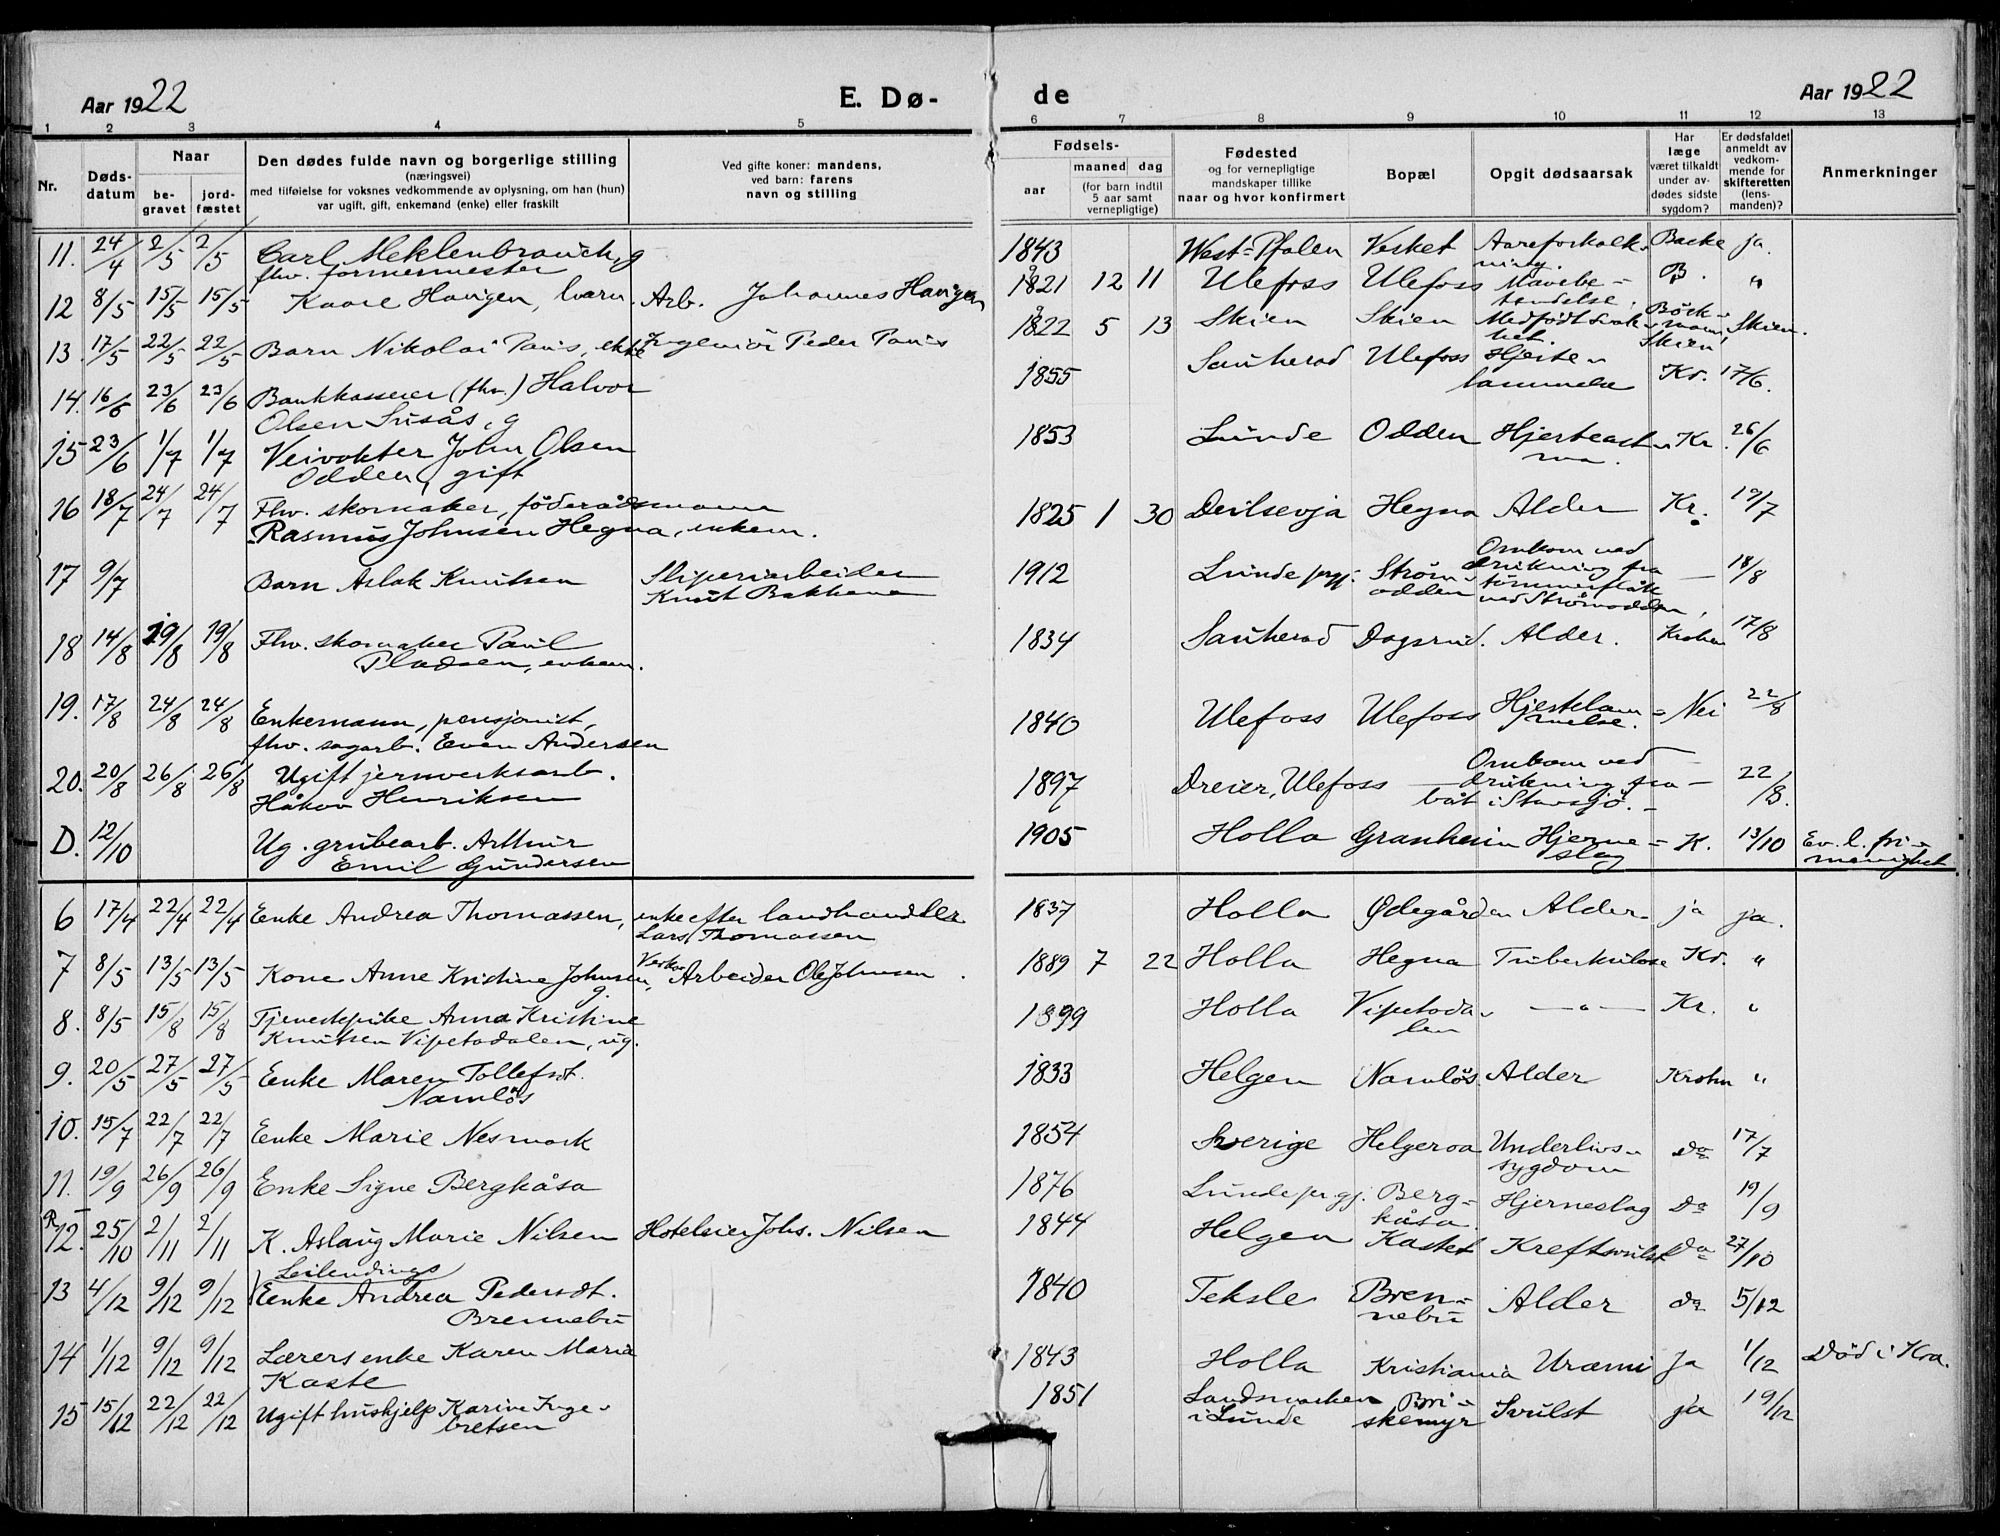 Aar 1922 E. Dø- de Aar 1922
1 2 3 4 5 6 7 8 9 10 11 12 13
Nr.
Døds-
datum
Naar
be-
gravet
jord-
fæstet
Den dødes fulde navn og borgerlige stilling
(næringsvei)
med tilføielse for voksnes vedkommende av oplysning, om han (hun)
var ugift, gift, enkemand (enke) eller fraskilt
Ved gifte koner: mandens,
ved barn: farens
navn og stilling
Fødsels-
aar
maaned dag
(for barn indtil
5 aar samt
vernepligtige)
Fødested
og for vernepligtige
mandskaper tillike
naar og hvor konfirmert
Bopæl
Opgit dødsaarsak
Har
læge
været tilkaldt
under av-
dødes sidste
sygdom?
Er dødsfaldet
anmeldt av
vedkom-
mende for
skifteretten
(lens-
manden)?
Anmerkninger
11. 24/4 2/5 2/5 Carl Meklenbrauch, g 1843 West-Pfalen Vesket Aareforkalk- Backe ja.
fhv. formermester ning.
12 8/5 15/5 15/5 Kaare Havigen, barn. Arb. Johannes Havigen 1821 12 11 Ulefoss Ulefoss Mavebe- B. "
tendelse.
13. 17/5 22/5 22/5 Barn Nikolai Paus, ekte Ingeniør Peder Paus 1822 5 13 Skien Skien Medfødt svak- Böck- Skien.
het. mann Skien
14. 16/6 23/6 23/6 Bankkasserer (fhv.) Halvor 1855 Sauherad Ulefoss Hjerte- Kr. 17/6.
Olsen Susås, g lammelse
15 23/6 1/7 1/7 Veivokter John Olsen 1853 Lunde Odden Hjerteast- Kr. 26/6
Odden, gift ma.
16 18/7 24/7 24/7 Fhv. skomaker, föderådsmann 1825 1 30 Deilsevja Hegna Alder Kr. 19/7
Rasmus Johnsen Hegna, enkem.
17 9/7 Barn Aslak Knutsen Sliperiarbeider 1912 Lunde prgj. Strøm- Omkom ved — 18/8
Knut Bakkene odden drukning fra
tømmerflåte
ved Strømodden,
18 14/8 19/8 19/8 Fhv. skomaker Paul 1834 Sauherad Dagsrud. Alder. Krohn 17/8
Pladsen, enkem.
19. 17/8 24/8 24/8 Enkemann, pensjonist, 1840 Ulefoss Ulefoss Hjertelam- Nei 22/8
fhv. sagarb. Even Andersen melse.
20. 20/8 26/8 26/8 Ugift jernverksarb. 1897 Dreier, Ulefoss — Omkom ved — 22/8.
Håkon Henriksen drukning fra
båt i Stavsjö. —
D. 12/10 Ug. grubearb. Arthur 1905 Holla Granheim Hjerne- K. 13/10 Ev. l. fri-
Emil Gundersen slag menighet
6 17/4 22/4 22/4 Enke Andrea Thomassen, enke efter landhandler 1837 Holla Ødegården Alder ja ja.
Lars Thomassen
7 8/5 13/5 13/5 Kone Anne Kristine Johnsen, Verks Arbeider Ole Johnsen. 1889 7 22 Holla Hegna Tuberkulose Kr. "
g.
8. 8/5 15/8 15/8 Tjenestpike Anna Kristine 1899 Holla Vipetoda- —"— Kr. "
Knutsen Vipetodalen, ug. len
9. 20/5 27/5 27/5 Enke Maren Tollefsdt. 1833 Helgen Namløs Alder Krohn "
Namlös
10. 15/7 22/7 22/7 Enke Marie Nesmark 1854 Sverige Helgeroa Underlivs- Do 17/7
sygdom
11. 19/9 26/9 26/9 Enke Signe Bergkåsa 1876 Lunde prgj. Berg- Hjerneslag Do 19/9
kåsa.
12. 25/10 2/11 2/11 K. Aslaug Marie Nilsen Hoteleier Johs. Nilsen 1844 Helgen Kastet Kreftsvulst Do 27/10
13 4/12 9/12 9/12 Enke Andrea Pedersdt. 1840 Teksle Bren- Alder do 5/12
Brennebu nebu
14 1/12 9/12 9/12 Lærersenke Karen Marie 1843 Holla Kristiania Uræmi Ja 1/12 Død i Kra.
Kaste
15 15/12 22/12 22/12 Ugift hushjelp Karine Inge- 1851 Landsmarken Bri- Svulst ja 19/12
bretsen i Lunde skemyr